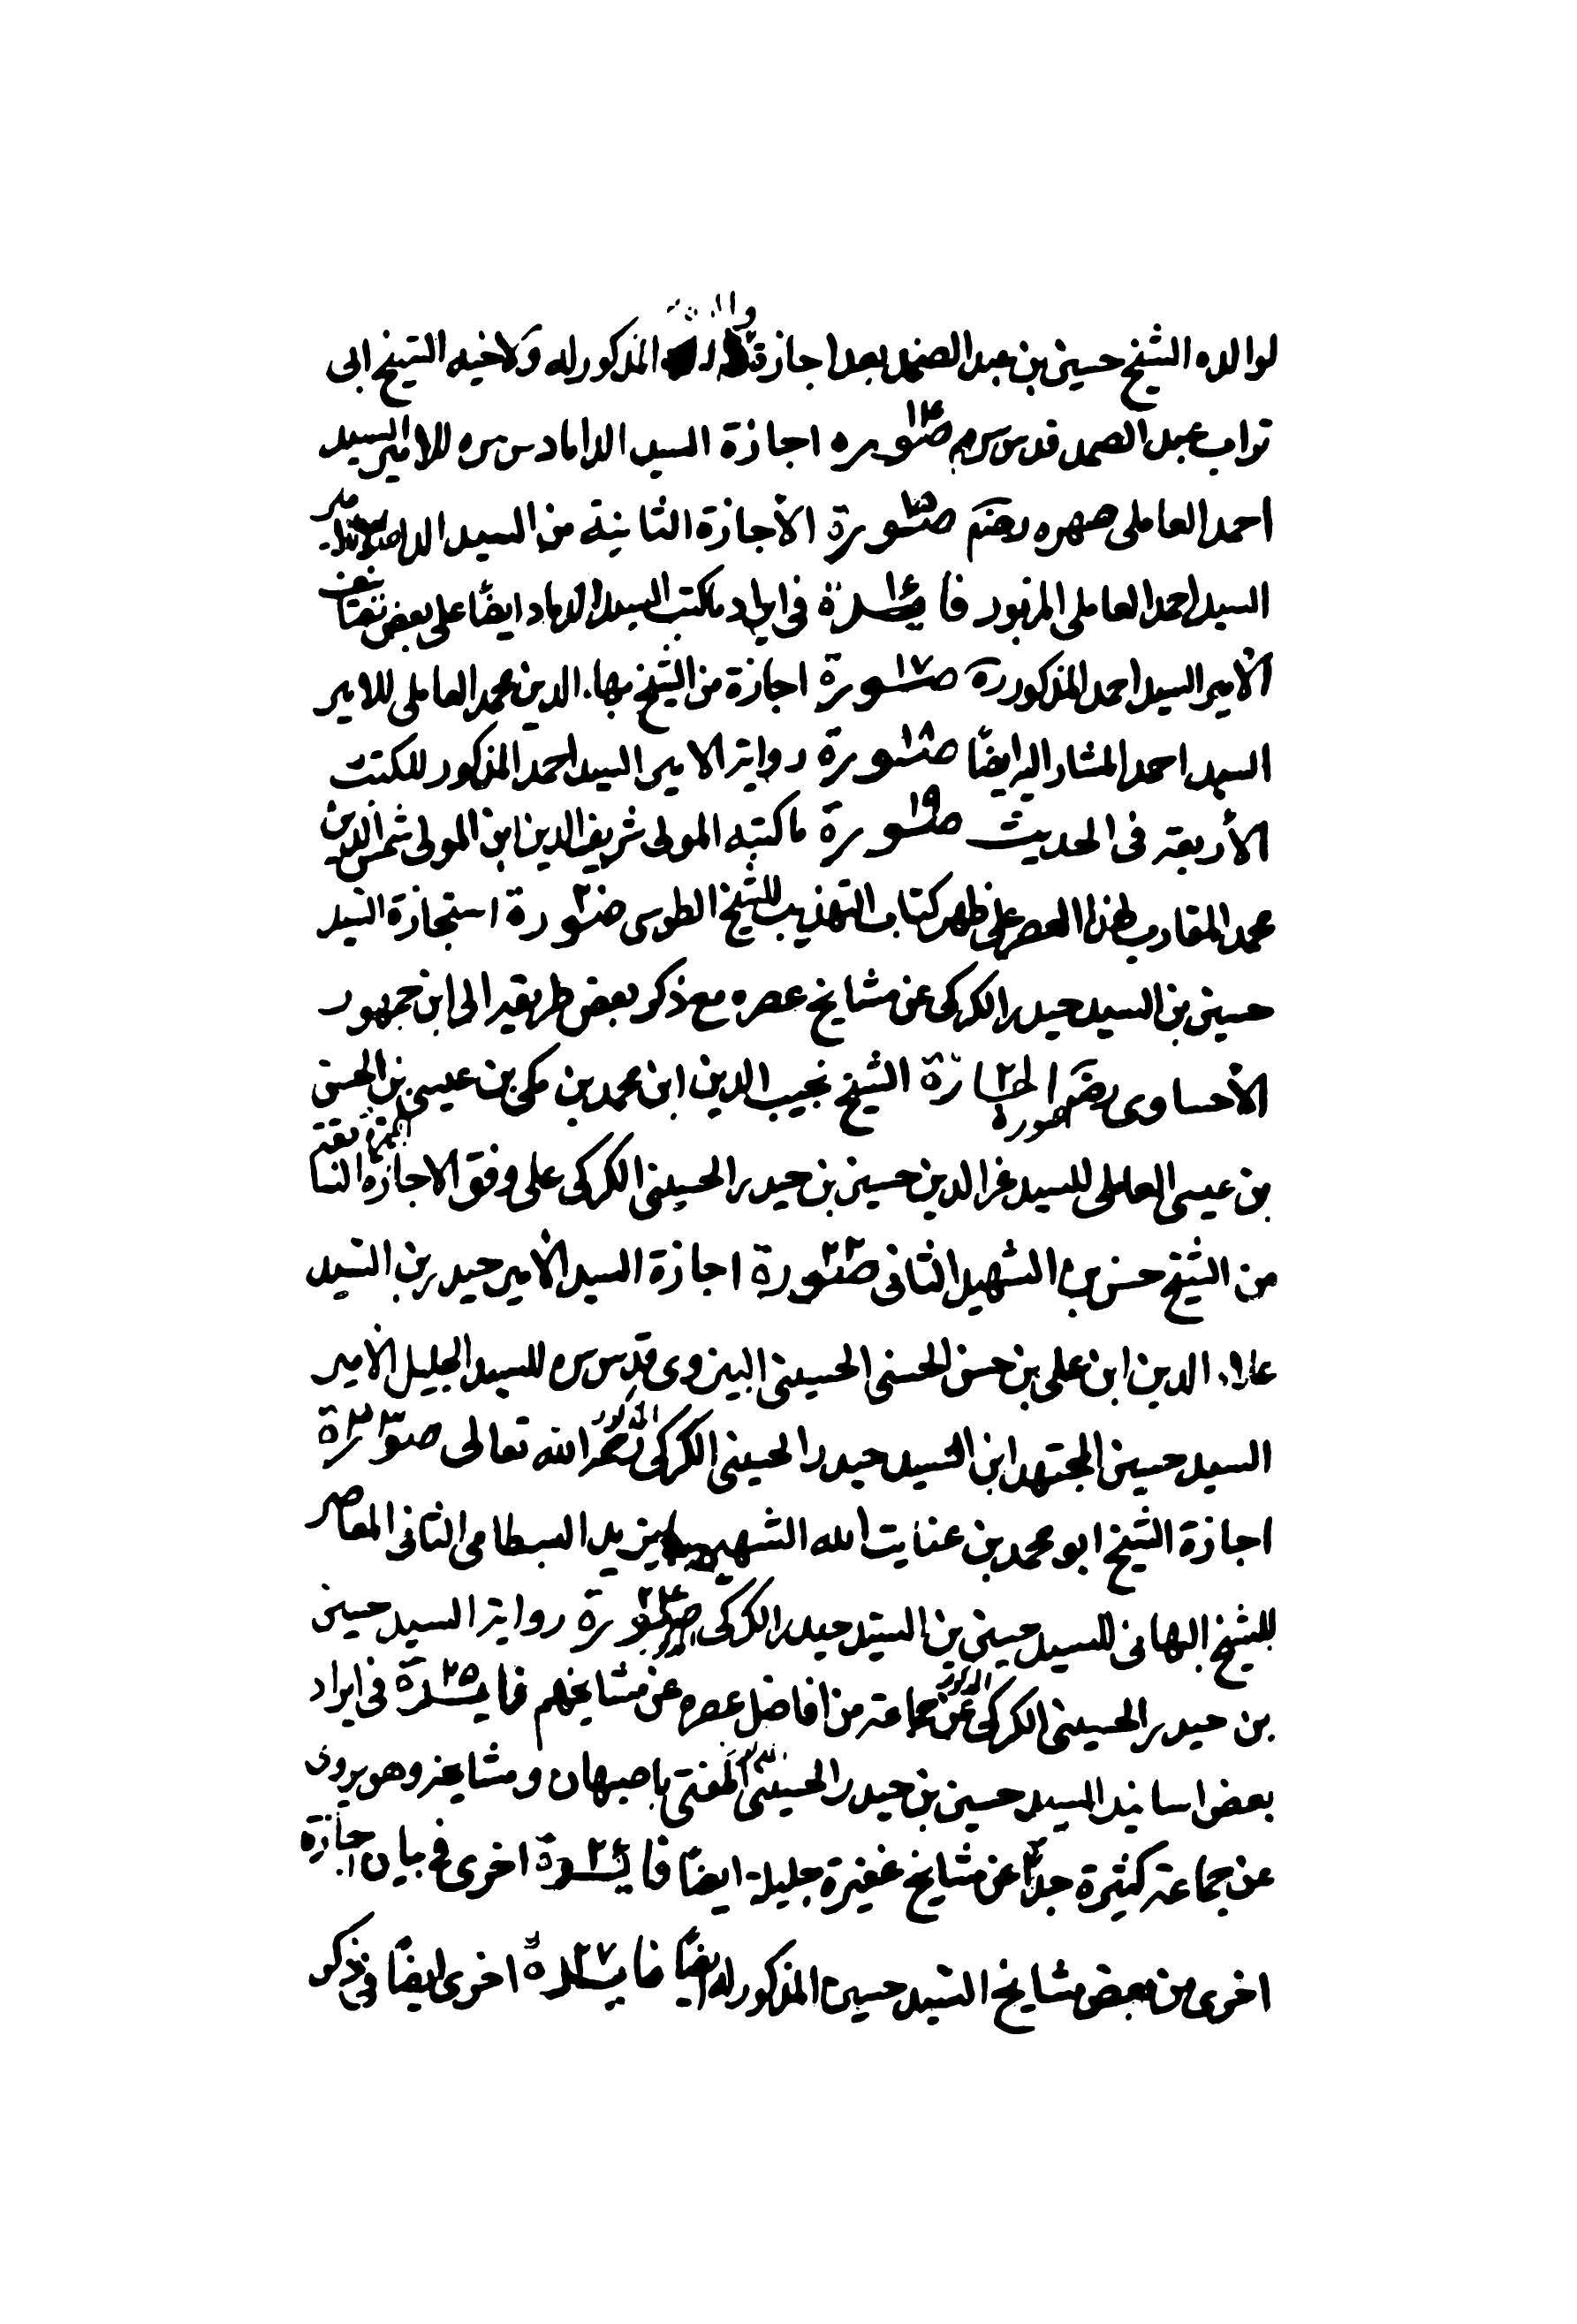 لوالده الشيخ حسين بن عبد الصمد بعد اجازة المذكور له ولاخيه الشيخ ابى
تراب عبد الصمد قدس سرهم صورة ١٤ اجازة السيد الداماد س سره للامير السيد
احمد العاملى صهره رضهم صورة ١٥ الأجازة الثانية من السيد الداماد
السيد احمد العاملى المزبور فائدة ١٦ فى ايراد ما كتب السيد الداماد ايضًا على بعض
الأمير السيد احمد المذكور ره صورة ١٧ اجازة من الشيخ بهاء الدين محمد العاملى للامير
السيد احمد المشار اليه ايضًا صورة ١٨ رواية الامير السيد احمد المذكور للكتب
الأربعة فى الحديث صورة ١٩ ما كتبه المولى شريف الدين ابن المولى شمس الدين
محمد المقارب لهذا العصر على ظهر كتاب التهذيب للشيخ الطوسى صورة ٢٠ استجازة السيد
حسين بن السيد حيدر الكركى عن مشايخ عصره مع ذكر بعض طريقه الى ابن جمهور
الأحساوى رضه صورة ٢١ اجازة الشيخ نجيب الدين ابن محمد بن مكى بن عيسى بن الحسن
بن عيسى العاملى للسيد عز الدين حسين بن حيدر الحسينى الكركى على وفق الاجازة
من الشيخ حسن بن الشهيد الثانى صورة ٢٢ اجازة السيد الأمير حيدر بن السيد
علاء الدين ابن على بن حسن الحسنى الحسينى البيزوى قدس سره للسيد الجليل الأمير
السيد حسين المجتهد ابن السيد حيدر الحسينى الكركى المذكور رحمه الله تعالى صورة ٢٣
اجازة الشيخ ابو محمد بن عنايت الله الشهير ببايزيد البسطامى الثانى المعاصر
للشيخ البهائى للسيد حسين بن السيد حيدر الكركى صورة ٢٤ رواية السيد حسين
بن حيدر الحسينى الكركى المذكور عن جماعة من افاضل عصره عن مشايخهم فائدة ٢٥ فى ايراد
بعض اسانيد السيد حسين بن حيدر الحسينى المفتى باصبهان ومشايخه وهو يروى
عن جماعة كثيرة جدًا عن مشايخ غفيرة جليلة ايضًا فائدة ٢٦ اخرى فى بيان اجازة
اخرى من بعض مشايخ السيد حسين المذكور له ايضًا فائدة ٢٧ اخرى ايضًا فى ذكر